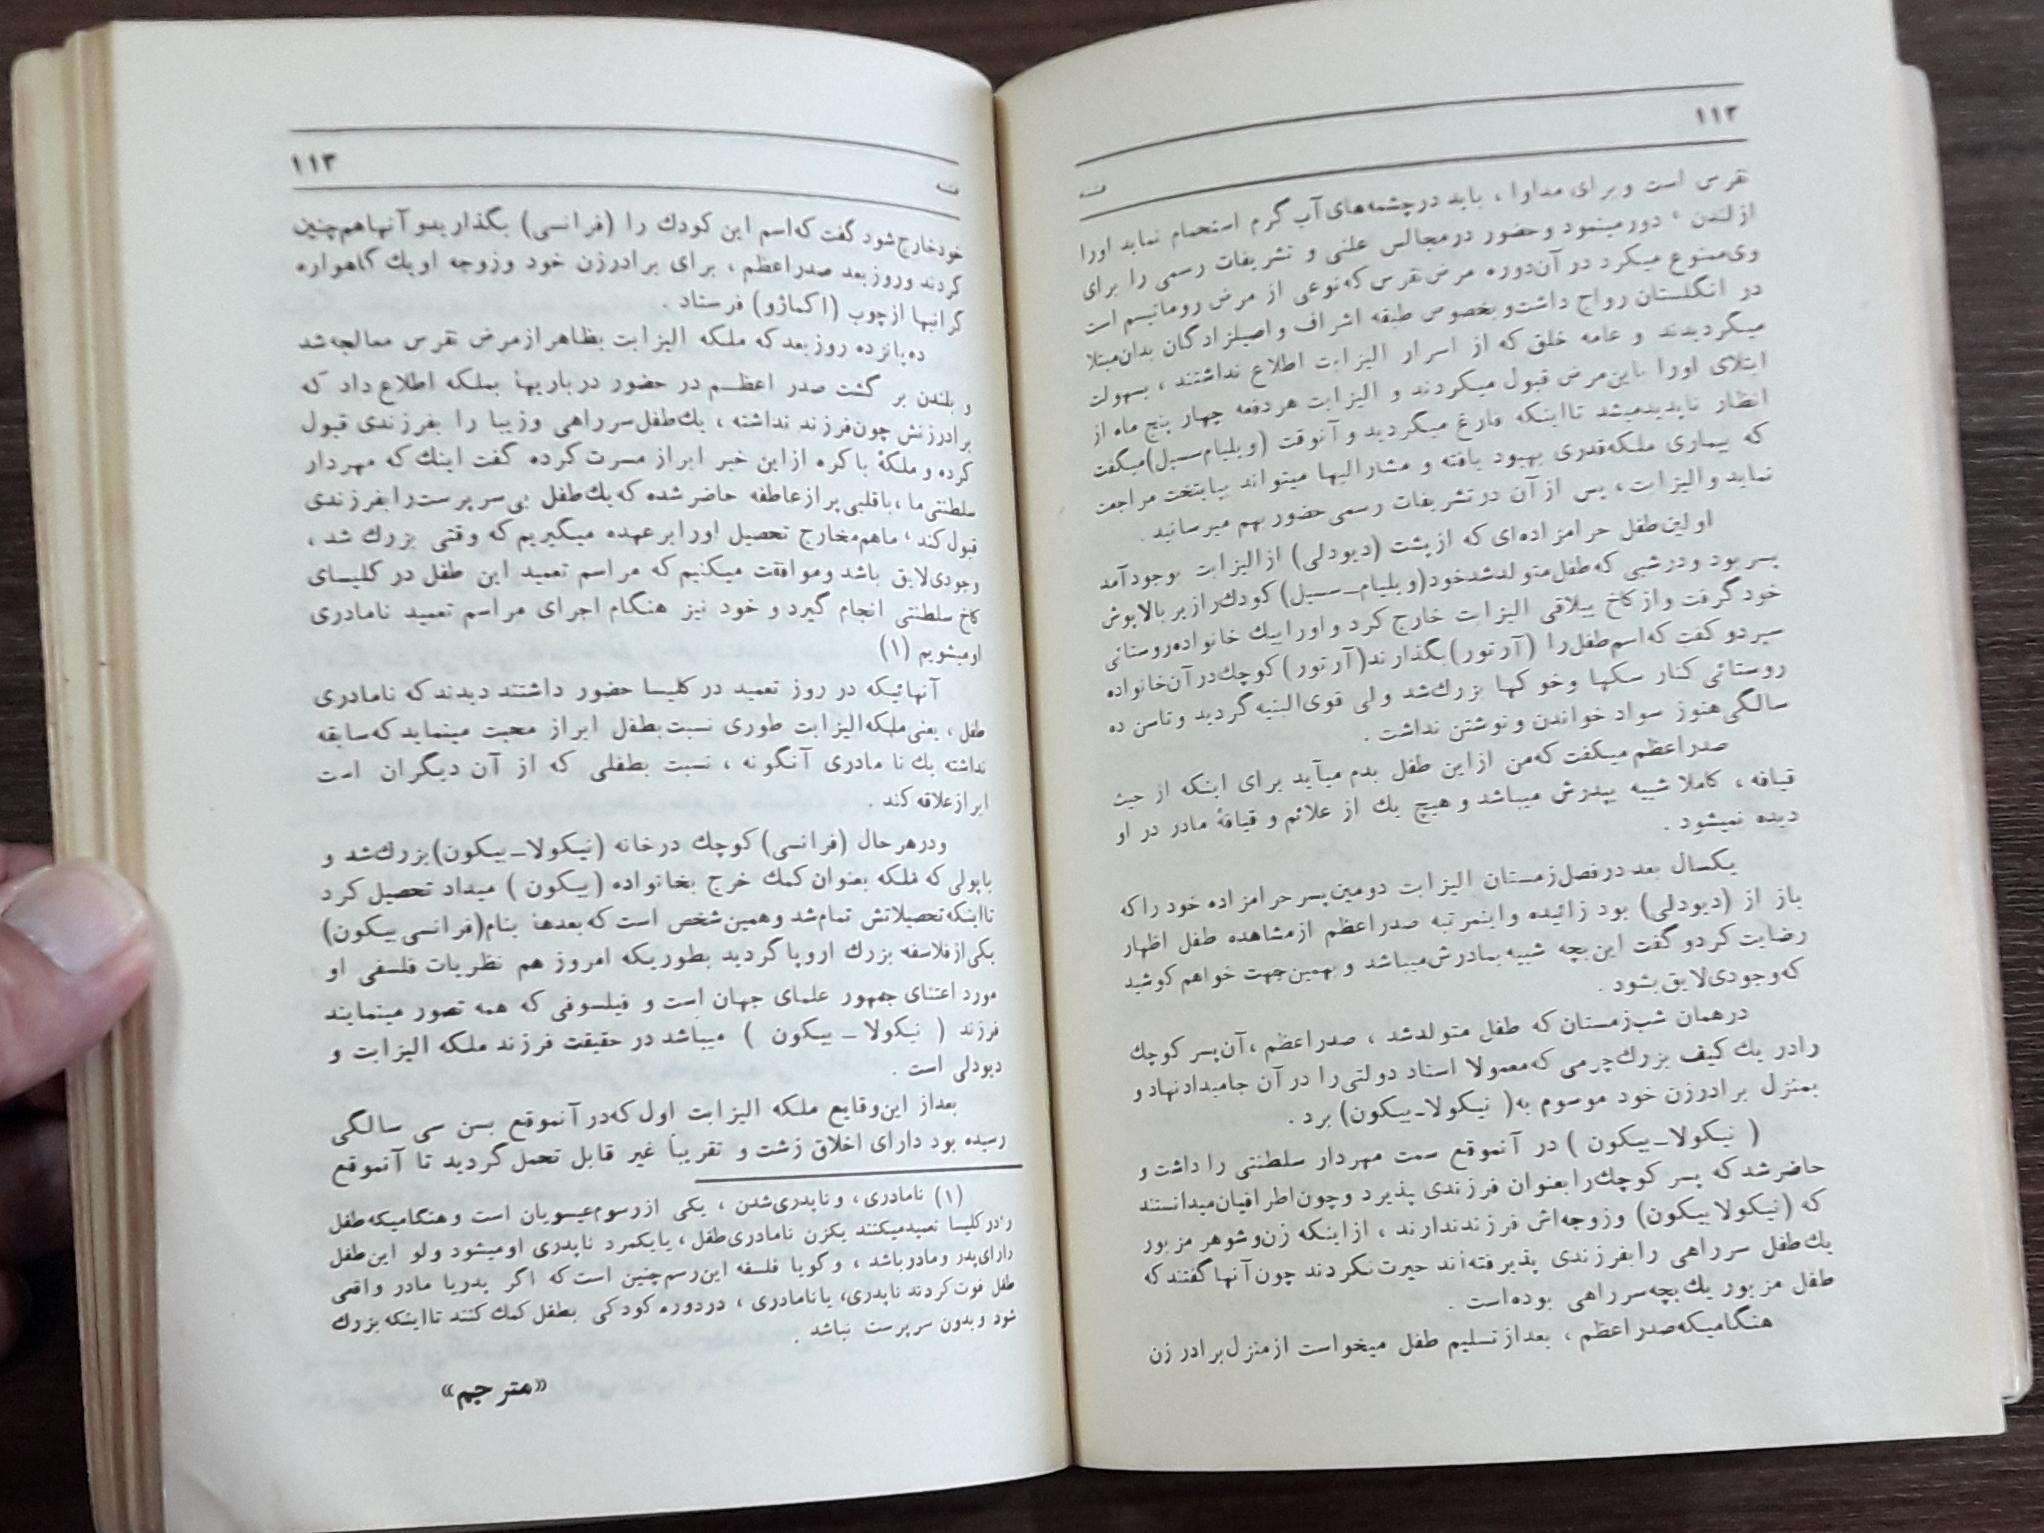 ۱۱۲
فتنه
نقرس است و برای مداوا ، باید در چشمه‌های آب گرم استحمام نماید اورا
از لندن ، دور مینمود و حضور در مجالس علنی و تشریفات رسمی را برای
وی ممنوع میکرد در آن دوره مرض نقرس که نوعی از مرض روماتیسم است
در انگلستان رواج داشت و بخصوص طبقه اشراف و اصیلزادگان بدان مبتلا
میگردیدند و عامه خلق که از اسرار الیزابت اطلاع نداشتند ، بسهولت
ابتلای اورا باین مرض قبول میکردند و الیزابت هر دفعه چهار پنج ماه از
انظار ناپدید میشد تا اینکه فارغ میگردید و آنوقت (ویلیام سسیل) میگفت
که بیماری ملکه قدری بهبود یافته و مشارالیها میتواند بپایتخت مراجعت
نماید و الیزابت ، پس از آن در تشریفات رسمی حضور بهم میرسانید .
اولین طفل حرامزاده‌ای که از پشت (دیودلی) از الیزابت بوجود آمد
پسر بود و در شبی که طفل متولد شد خود (ویلیام ـ سسیل) کودک را زیر بالاپوش
خود گرفت و از کاخ ییلاقی الیزابت خارج کرد و اورا بیك خانواده روستائی
سپرد و گفت که اسم طفل را (آرتور) بگذارند (آرتور) کوچك در آن خانواده
روستائی کنار سگها و خوکها بزرگ شد ولی قوی‌البنیه گردید و تا سن ده
سالگی هنوز سواد خواندن و نوشتن نداشت .
صدراعظم میگفت که من از این طفل بدم میآید برای اینکه از حیث
قیافه ، کاملا شبیه بپدرش میباشد و هیچ یك از علائم و قیافهٔ مادر در او
دیده نمیشود .
یکسال بعد در فصل زمستان الیزابت دومین پسر حرامزاده خود را که
باز از (دیودلی) بود زائیده و اینمرتبه صدراعظم از مشاهده طفل اظهار
رضایت کرد و گفت این بچه شبیه بمادرش میباشد و بهمین جهت خواهم کوشید
که وجودی لایق بشود .
در همان شب زمستان که طفل متولد شد ، صدراعظم ، آن پسر کوچك
را در یك کیف بزرگ چرمی که معمولا اسناد دولتی را در آن جا میداد نهاد و
بمنزل برادرزن خود موسوم به ( نیکولا ـ بیکون) برد .
( نیکولا ـ بیکون ) در آنموقع سمت مهردار سلطنتی را داشت و
حاضر شد که پسر کوچك را بعنوان فرزندی پذیرد و چون اطرافیان میدانستند
که (نیکولا بیکون) و زوجه‌اش فرزند ندارند ، از اینکه زن و شوهر مزبور
یك طفل سرراهی را بفرزندی پذیرفته‌اند حیرت نکردند چون آنها گفتند که
طفل مزبور یك بچه سرراهی بوده است .
هنگامیکه صدراعظم ، بعد از تسلیم طفل میخواست از منزل برادر زن
۱۱۳
فتنه
خود خارج شود گفت که اسم این کودك را (فرانسی) بگذارید و آنها هم چنین
کردند و روز بعد صدراعظم ، برای برادرزن خود و زوجه او یك گاهواره
گرانبها از چوب (اکماژو) فرستاد .
ده پانزده روز بعد که ملکه الیزابت بظاهر از مرض نقرس معالجه شد
و بلندن بر گشت صدر اعظـم در حضور درباریها بملکه اطلاع داد که
برادرزنش چون فرزند نداشته ، یك طفل سرراهی و زیبا را بفرزندی قبول
کرده و ملکهٔ باکره از این خبر ابراز مسرت کرده گفت اینك که مهردار
سلطنتی ما ، با قلبی پر از عاطفه حاضر شده که یك طفل بی سرپرست را بفرزندی
قبول کند ، ما هم مخارج تحصیل اورا برعهده میگیریم که وقتی بزرگ شد ،
وجودی لایق باشد و موافقت میکنیم که مراسم تعمید این طفل در کلیسای
کاخ سلطنتی انجام گیرد و خود نیز هنگام اجرای مراسم تعمید نامادری
او میشویم (۱)
آنهائیکه در روز تعمید در کلیسا حضور داشتند دیدند که نامادری
طفل ، یعنی ملکه الیزابت طوری نسبت بطفل ابراز محبت مینماید که سابقه
نداشته یك نا مادری آنگونه ، نسبت بطفلی که از آن دیگران است
ابراز علاقه کند .
و در هر حال (فرانسی) کوچك در خانه (نیکولا ـ بیکون) بزرگ شد و
با پولی که ملکه بعنوان کمك خرج بخانواده ( بیکون ) میداد تحصیل کرد
تا اینکه تحصیلاتش تمام شد و همین شخص است که بعدها بنام (فرانسی بیکون)
یکی از فلاسفه بزرگ اروپا گردید بطوریکه امروز هم نظریات فلسفی او
مورد اعتنای جمهور علمای جهان است و فیلسوفی که همه تصور مینمایند
فرزند ( نیکولا ـ بیکون ) میباشد در حقیقت فرزند ملکه الیزابت و
دیودلی است .
بعد از این وقایع ملکه الیزابت اول که در آنموقع بسن سی سالگی
رسیده بود دارای اخلاق زشت و تقریباً غیر قابل تحمل گردید تا آنموقع
(۱) نامادری ، و ناپدری شدن ، یکی از رسوم عیسویان است و هنگامیکه طفل
را در کلیسا تعمید میکنند یکزن نامادری طفل ، یا یکمرد ناپدری او میشود ولو این طفل
دارای پدر و مادر باشد ، و گویا فلسفه این رسم چنین است که اگر پدر یا مادر واقعی
طفل فوت کردند ناپدری، یا نامادری ، در دوره کودکی بطفل کمك کنند تا اینکه بزرگ
شود و بدون سرپرست نباشد .
«مترجم»